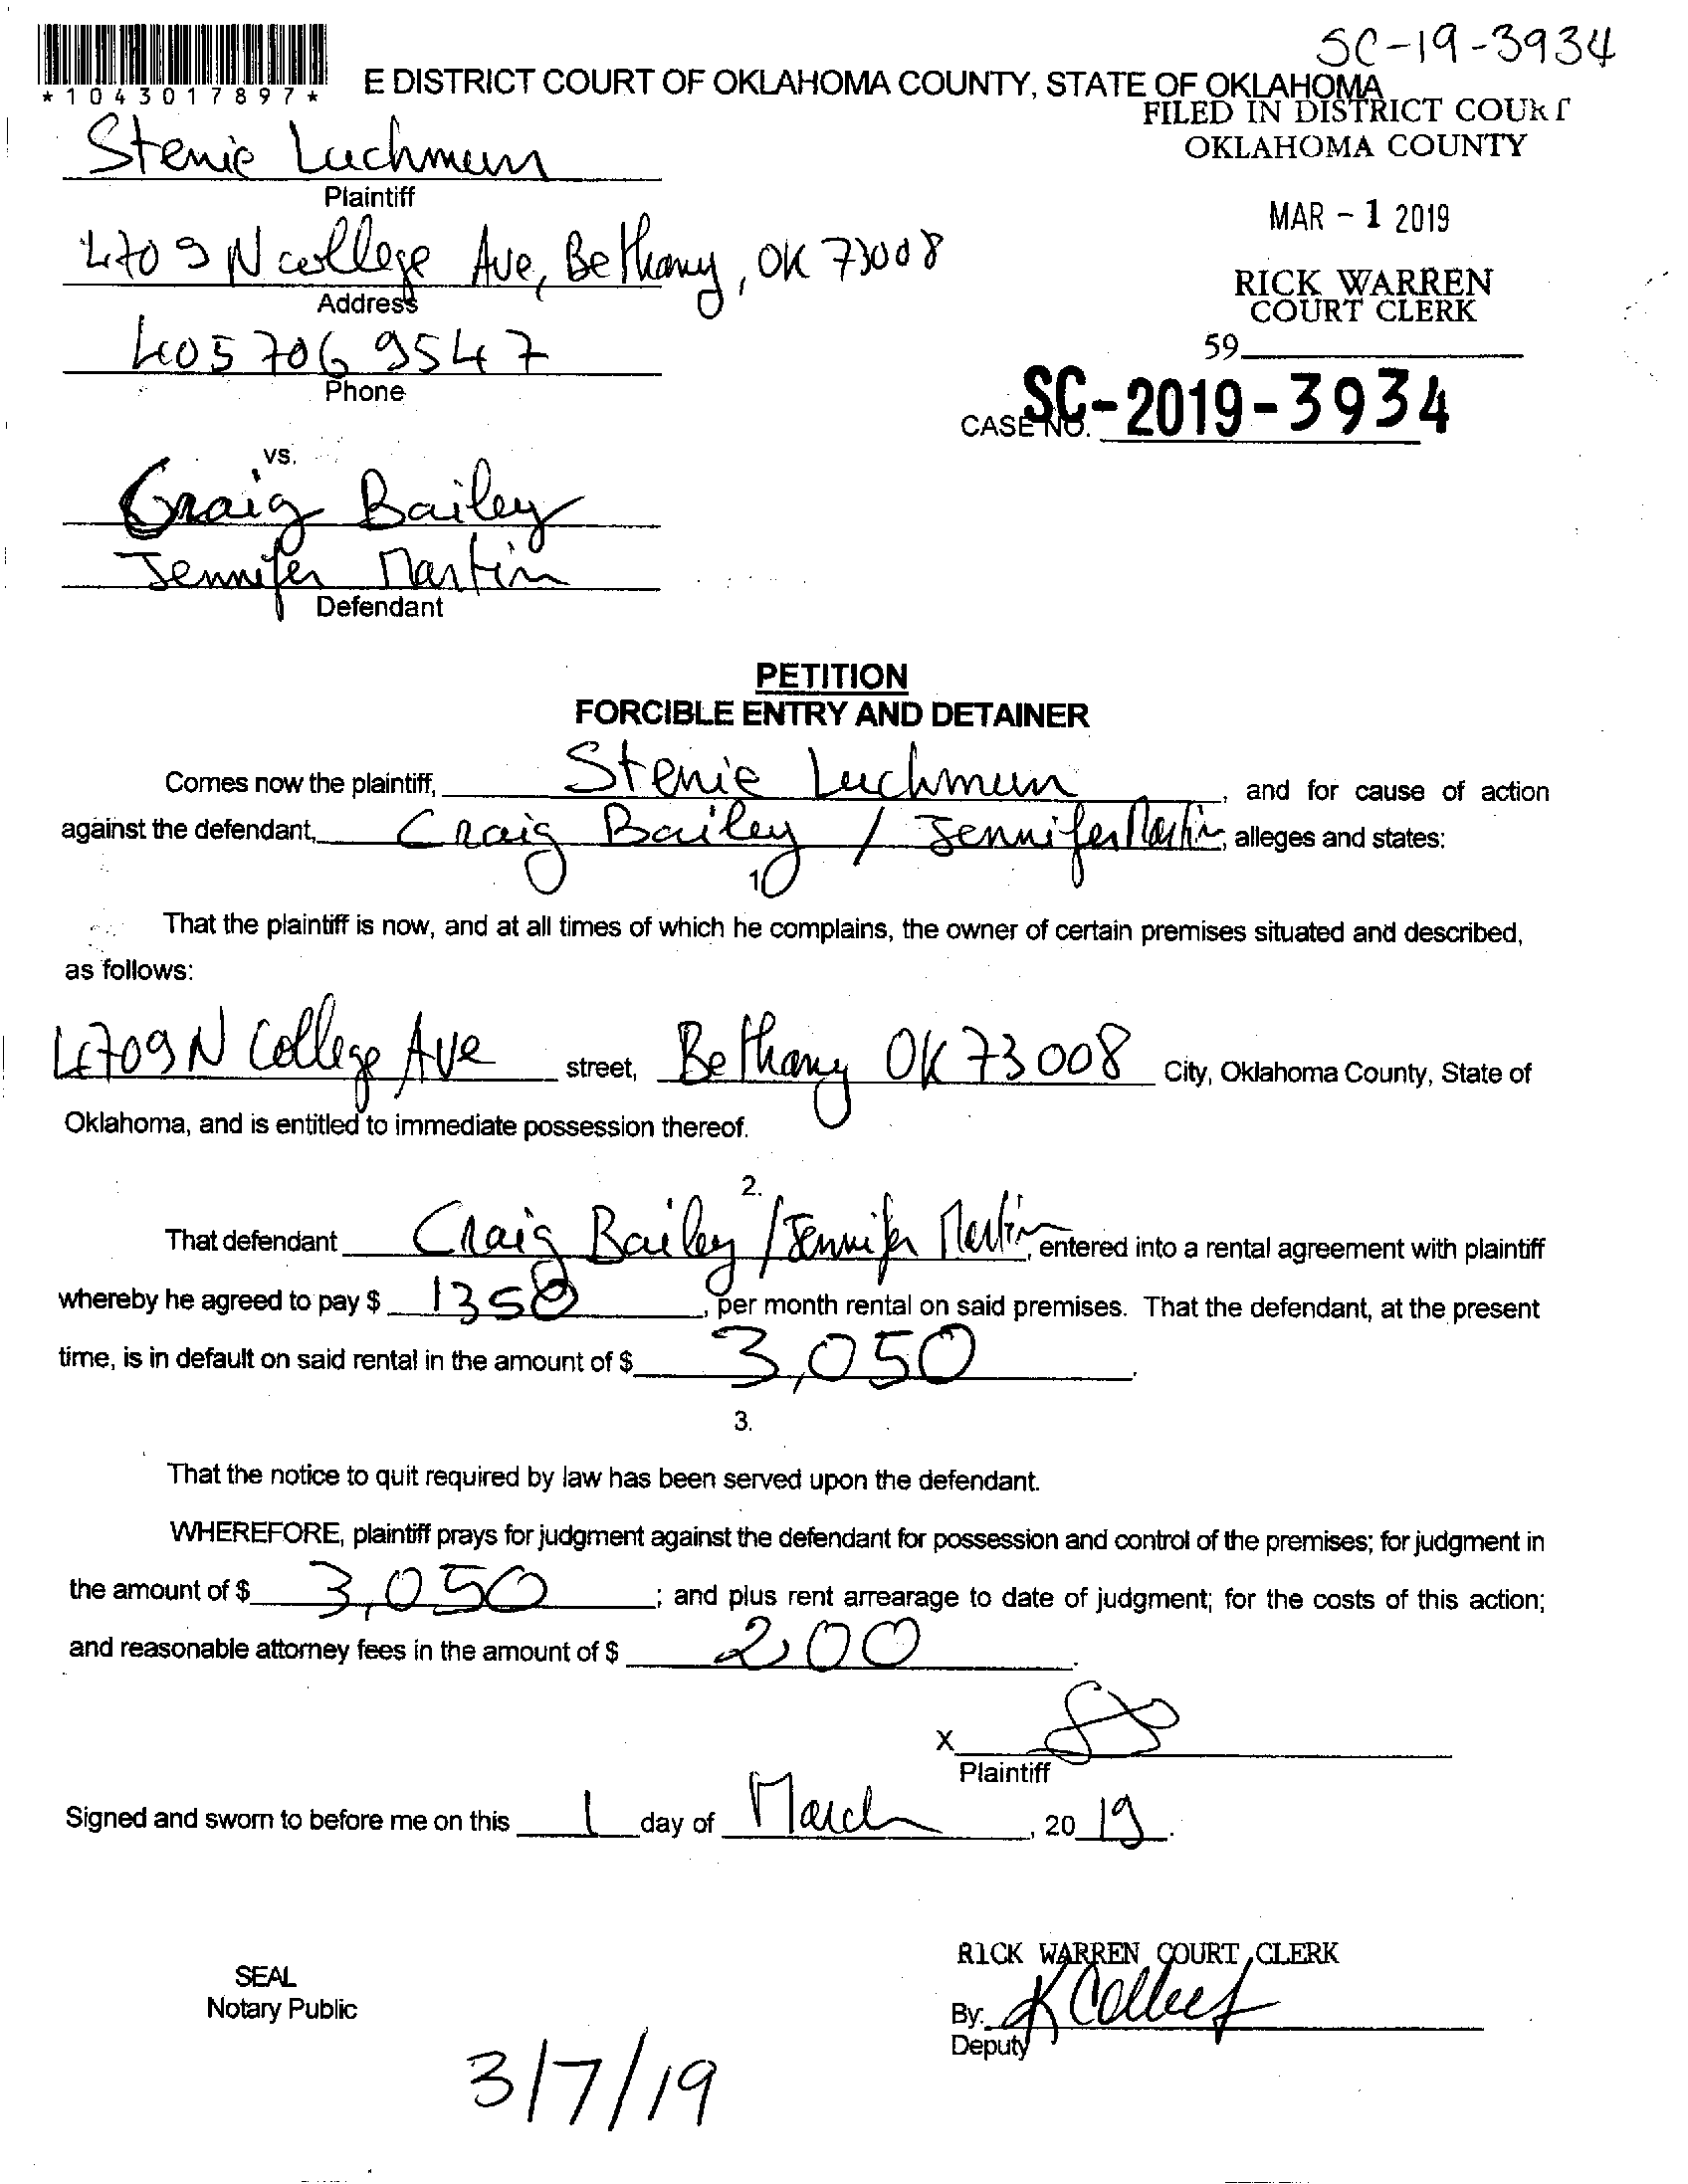 SC-19-3934
*1043017897*
E DISTRICT COURT OF OKLAHOMA COUNTY, STATE OF OKLAHOMA
FILED IN DISTRICT COURT
OKLAHOMA COUNTY
Stenie Luchmun
Plaintiff
MAR - 1 2019
4709 N college Ave, Bethany, OK 73008
Address
RICK WARREN
COURT CLERK
405 706 9547
Phone
59
CASE NO. SC-2019-3934
vs.
Craig Bailey
Jennifer Martin
Defendant
PETITION
FORCIBLE ENTRY AND DETAINER
Comes now the plaintiff, Stenie Luchmun, and for cause of action
against the defendant, Craig Bailey / Jennifer Martin, alleges and states:
1
That the plaintiff is now, and at all times of which he complains, the owner of certain premises situated and described,
as follows:
4709 N College Ave street, Bethany OK 73008 City, Oklahoma County, State of
Oklahoma, and is entitled to immediate possession thereof.
2.
That defendant Craig Bailey / Jennifer Martin, entered into a rental agreement with plaintiff
whereby he agreed to pay $ 1350, per month rental on said premises. That the defendant, at the present
time, is in default on said rental in the amount of $ 3,050.
3.
That the notice to quit required by law has been served upon the defendant.
WHEREFORE, plaintiff prays for judgment against the defendant for possession and control of the premises; for judgment in
the amount of $ 3,050; and plus rent arrearage to date of judgment; for the costs of this action;
and reasonable attorney fees in the amount of $ 200.
X
Plaintiff
Signed and sworn to before me on this 1 day of March, 20 19.
RICK WARREN COURT CLERK
SEAL
Notary Public
By:
Deputy
3/7/19